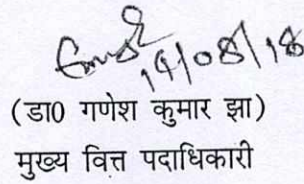 14/08/18
(डा0 गणेश कुमार झा)
मुख्य वित्त पदाधिकारी